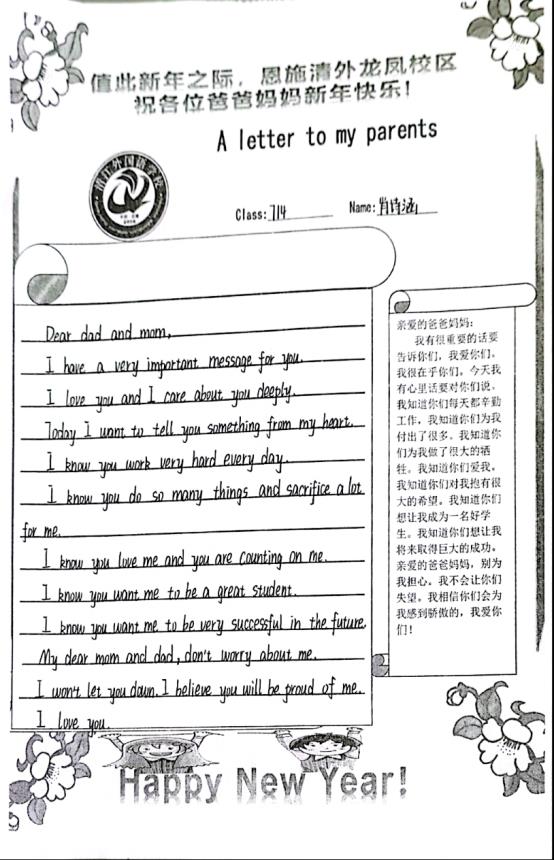 值此新年之际，恩施清外龙凤校区
祝各位爸爸妈妈新年快乐！
A letter to my parents
清江外国语学校
Class: 714 Name: 肖诗涵
Dear dad and mom,
I have a very important message for you.
I love you and I care about you deeply.
Today I want to tell you something from my heart.
I know you work very hard every day.
I know you do so many things and sacrifice a lot
for me.
I know you love me and you are counting on me.
I know you want me to be a great student.
I know you want me to be very successful in the future.
My dear mom and dad, don't worry about me.
I won't let you down. I believe you will be proud of me.
I love you.
亲爱的爸爸妈妈：
我有很重要的话要
告诉你们，我爱你们。
我很在乎你们。今天我
有心里话要对你们说。
我知道你们每天都辛勤
工作。我知道你们为我
付出了很多。我知道你
们为我做了很大的牺
牲。我知道你们爱我。
我知道你们对我抱有很
大的希望。我知道你们
想让我成为一名好学
生。我知道你们想让我
将来取得巨大的成功。
亲爱的爸爸妈妈，别为
我担心。我不会让你们
失望。我相信你们会为
我感到骄傲的，我爱你
们！
Happy New Year!